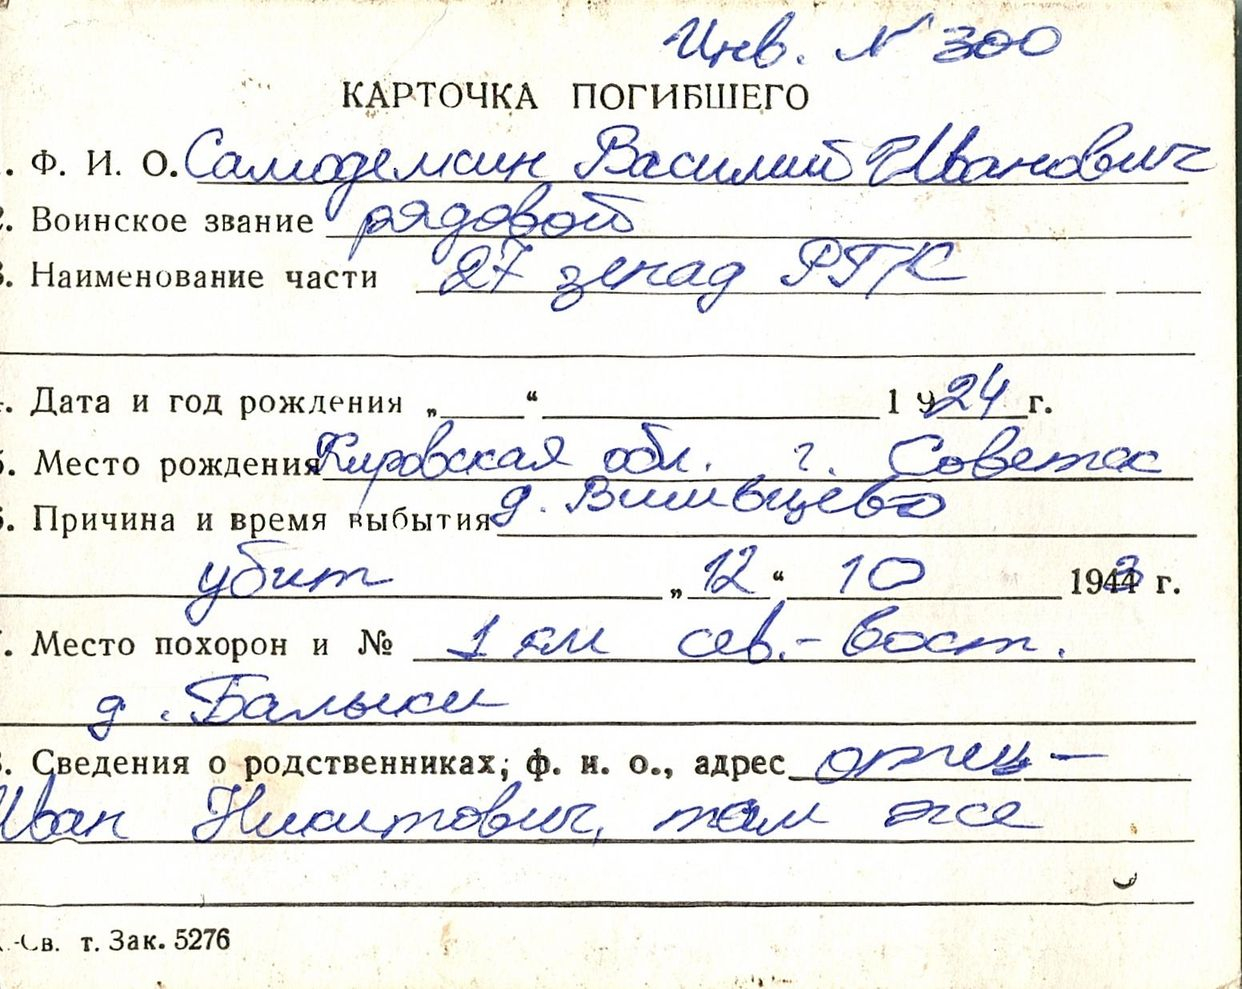 Инв. № 300
КАРТОЧКА ПОГИБШЕГО
. Ф. И. О. Самоделкин Василий Иванович
2. Воинское звание рядовой
3. Наименование части 27 зенад РГК
4. Дата и год рождения „ “ 1924 г.
5. Место рождения Кировская обл. г. Советск
д. Вишивцево
6. Причина и время выбытия
убит „12“ 10 1943 г.
7. Место похорон и № 1 км сев.-вост.
д. Балыки
8. Сведения о родственниках, ф. и. о., адрес отец –
Иван Никитович, там же
-Св. т. Зак. 5276